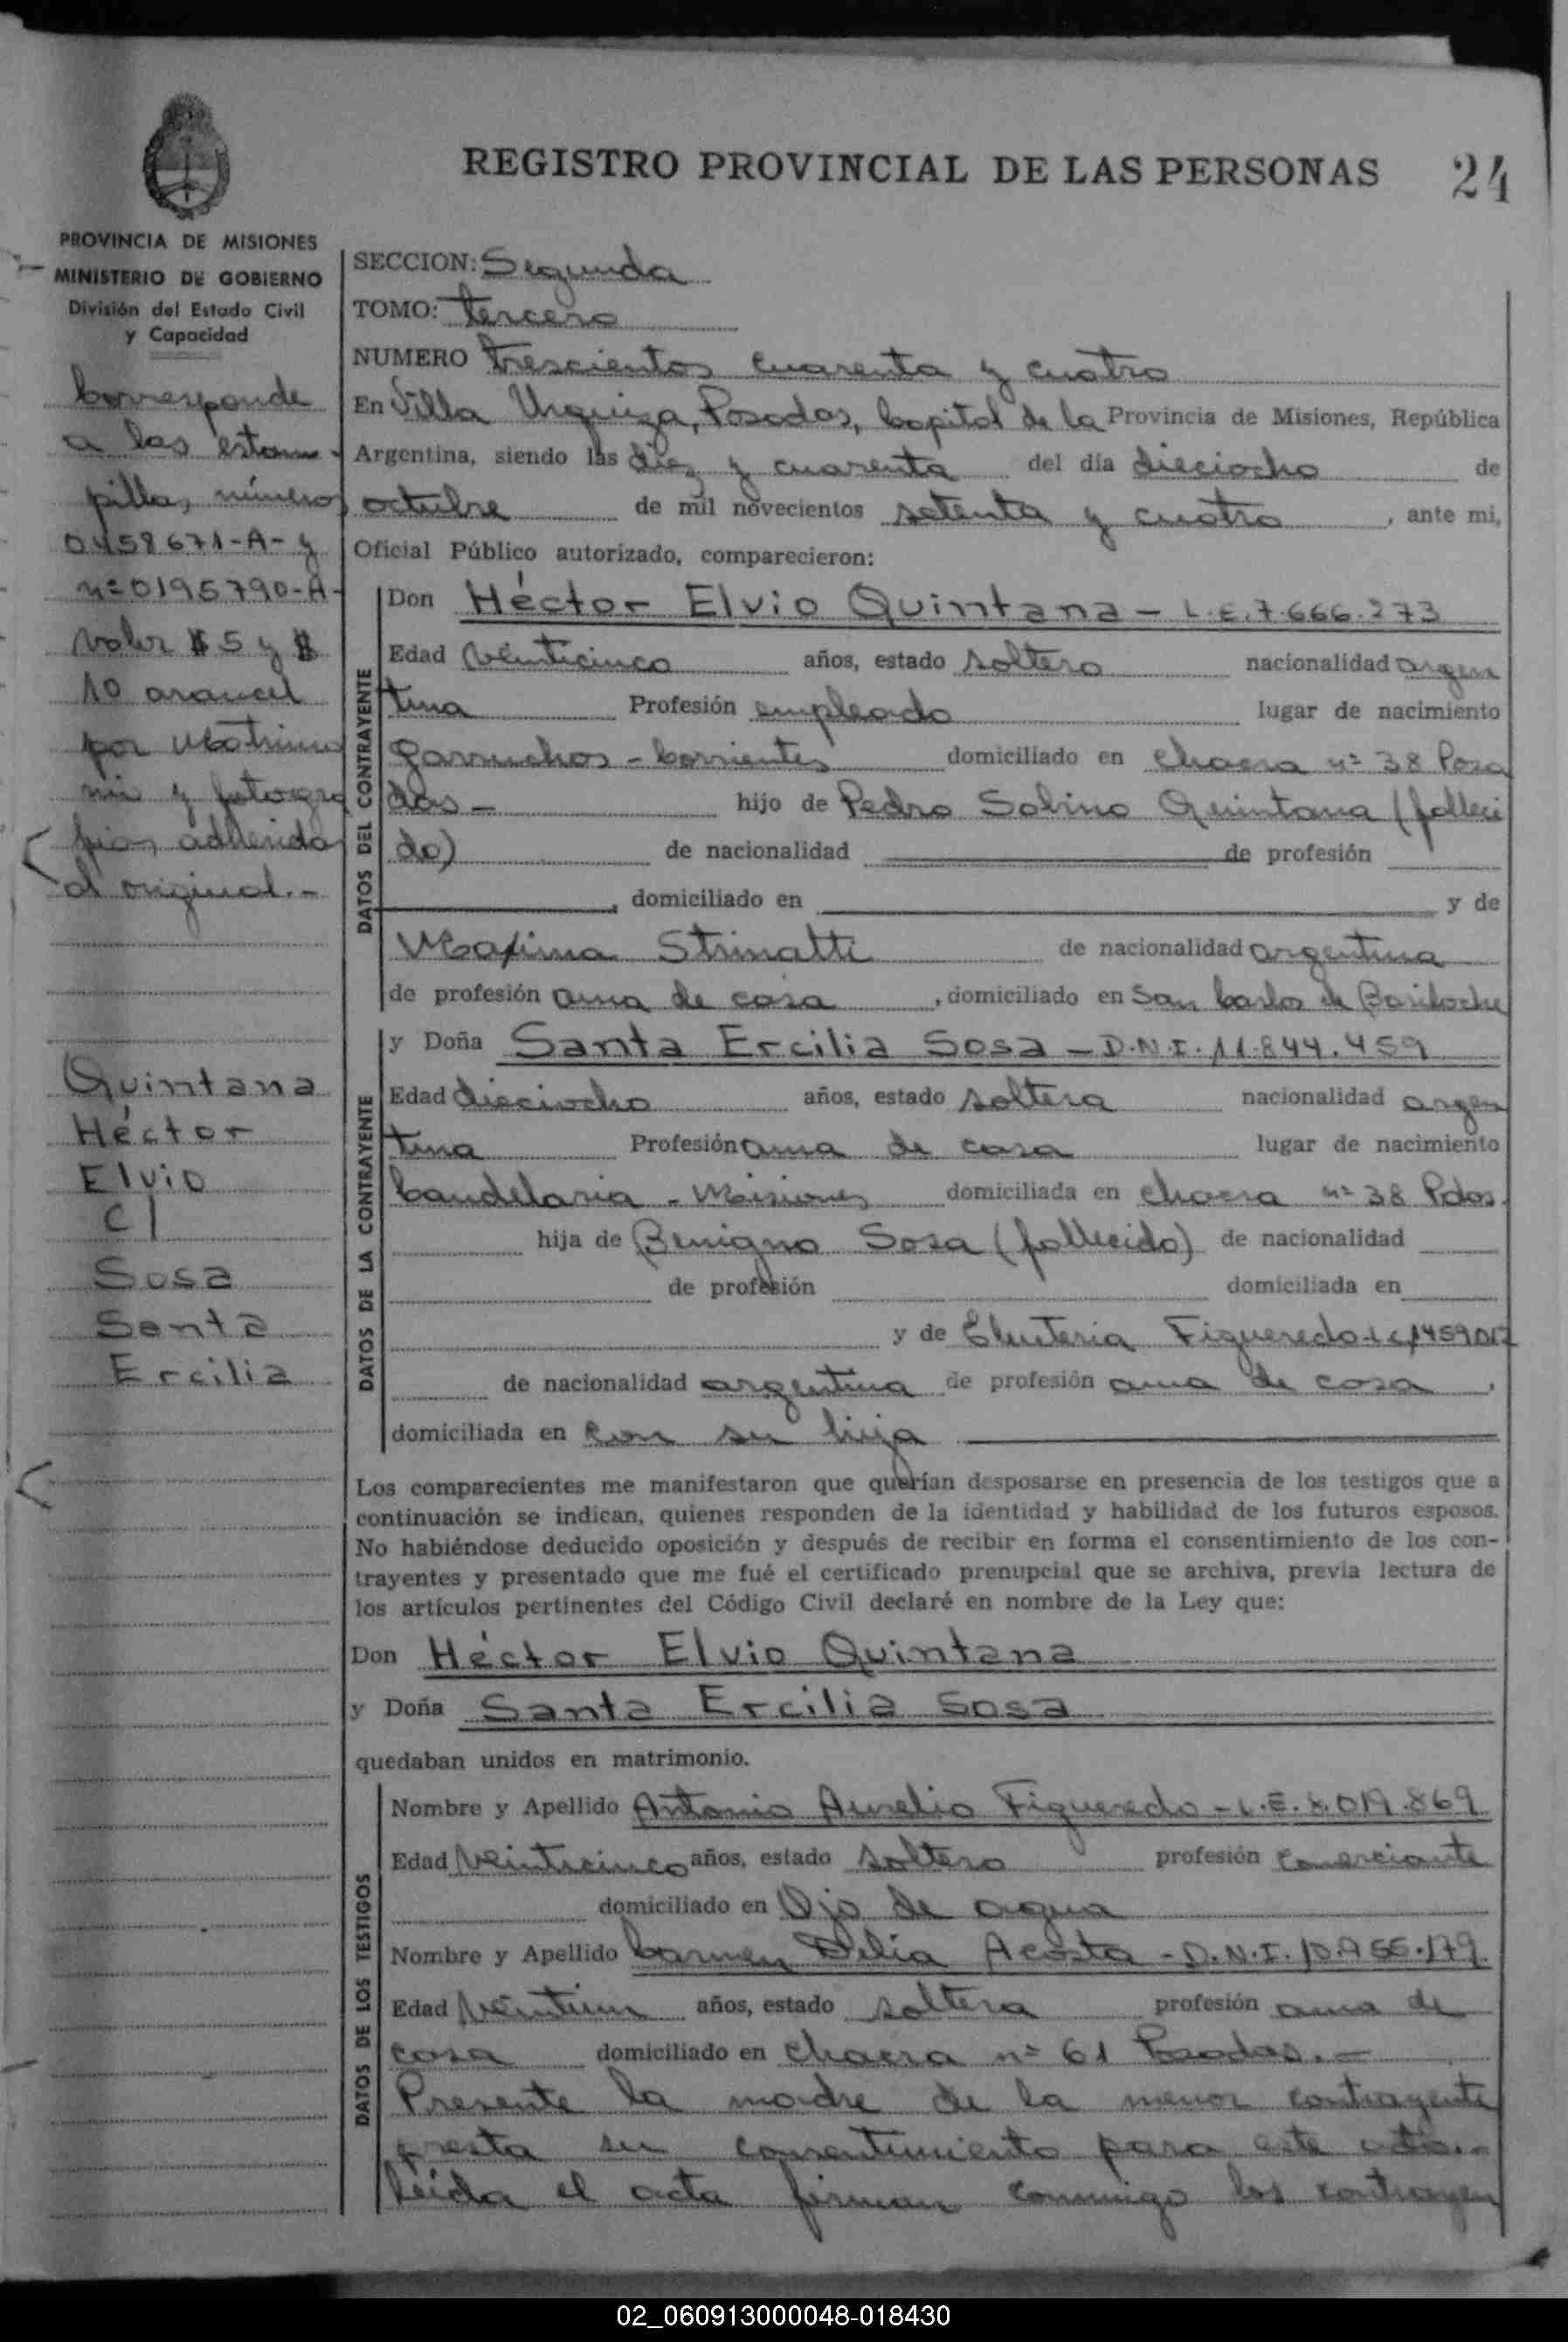 REGISTRO PROVINCIAL DE LAS PERSONAS 24
PROVINCIA DE MISIONES
MINISTERIO DE GOBIERNO
División del Estado Civil
y Capacidad
Corresponde
a las estam-
pillas, número
0458671-A- y
nº 0195790-A-
valor $5 y $
10 arancel
por Matrimo
nio y fotogra
fias adherida
al original.-
Quintana
Héctor
Elvio
C/
Sosa
Santa
Ercilia
SECCION: Segunda
TOMO: tercero
NUMERO trescientos cuarenta y cuatro
En Villa Urquiza, Posadas, Capital de la Provincia de Misiones, República
Argentina, siendo las diez y cuarenta del día dieciocho de
octubre de mil novecientos setenta y cuatro, ante mi,
Oficial Público autorizado, comparecieron:
DATOS DEL CONTRAYENTE
Don Héctor Elvio Quintana - L.E.7.666.273
Edad veinticinco años, estado soltero nacionalidad argen
tina Profesión empleado lugar de nacimiento
Garruchos - Corrientes domiciliado en chacra nº 38 Posa
das - hijo de Pedro Sabino Quintana (falleci
do) de nacionalidad de profesión
, domiciliado en y de
Maxima Strinatti de nacionalidad argentina
de profesión ama de casa, domiciliado en San Carlos de Bariloche
DATOS DE LA CONTRAYENTE
y Doña Santa Ercilia Sosa - D.N.I. 11.844.459
Edad dieciocho años, estado soltera nacionalidad argen
tina Profesión ama de casa lugar de nacimiento
Candelaria - Misiones domiciliada en chacra nº 38 Pdas.
hija de Benigno Sosa (fallecido) de nacionalidad
de profesión domiciliada en
y de Eleuteria Figueredo
de nacionalidad argentina de profesión ama de casa,
domiciliada en con su hija
Los comparecientes me manifestaron que querían desposarse en presencia de los testigos que a
continuación se indican, quienes responden de la identidad y habilidad de los futuros esposos.
No habiéndose deducido oposición y después de recibir en forma el consentimiento de los con-
trayentes y presentado que me fué el certificado prenupcial que se archiva, previa lectura de
los artículos pertinentes del Código Civil declaré en nombre de la Ley que:
Don Héctor Elvio Quintana
y Doña Santa Ercilia Sosa
quedaban unidos en matrimonio.
DATOS DE LOS TESTIGOS
Nombre y Apellido Antonio Aurelio Figueredo - L.E. 8.019.869
Edad veinticinco años, estado soltero profesión comerciante
domiciliado en Ojo de agua
Nombre y Apellido Carmen Delia Acosta - D.N.I. 10.955.179
Edad veintiun años, estado soltera profesión ama de
casa domiciliado en chacra nº 61 Posadas.-
Presente la madre de la menor contrayente
presta su consentimiento para este acto.-
Leida el acta firman conmigo los contrayen
02_060913000048-018430